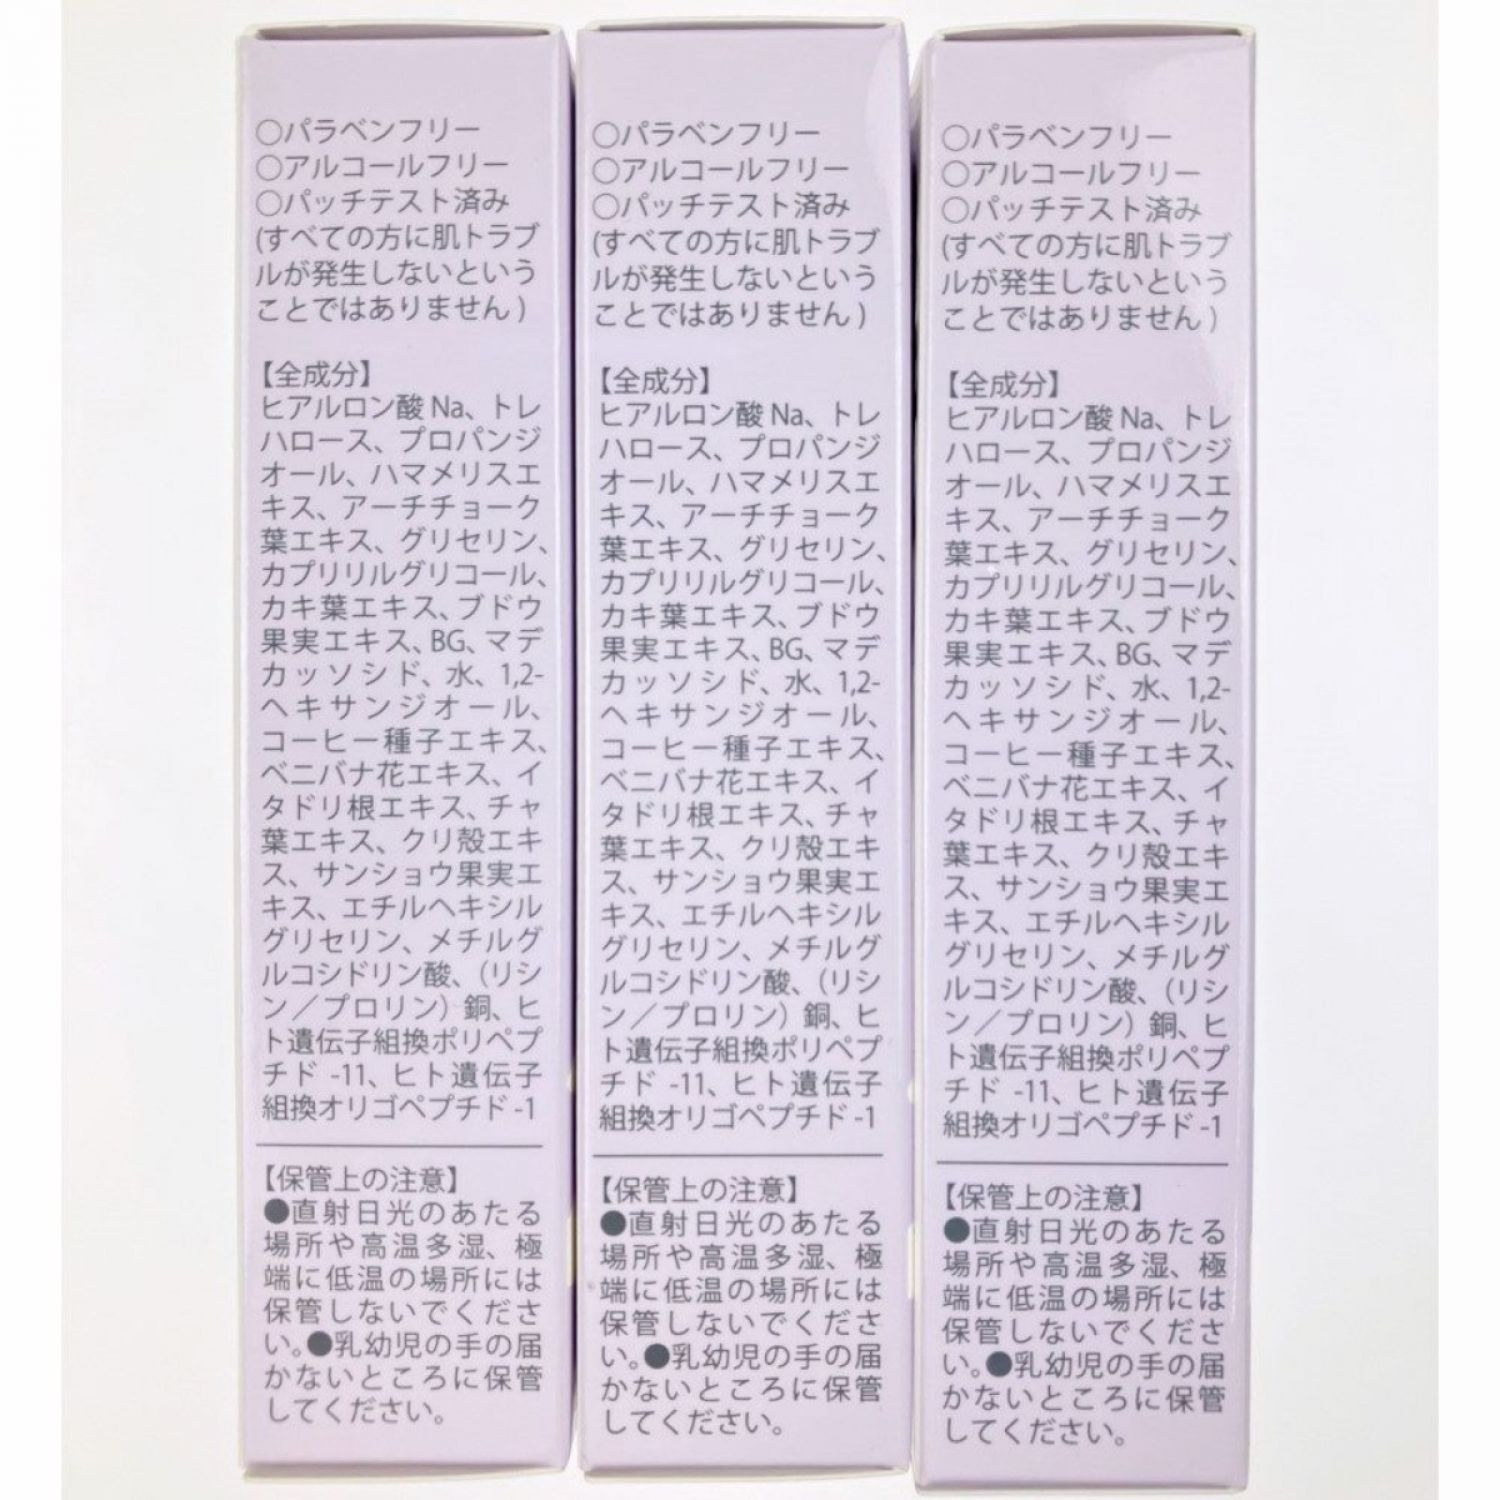 ○パラベンフリー
○アルコールフリー
○パッチテスト済み
(すべての方に肌トラブ
ルが発生しないという
ことではありません)
【全成分】
ヒアルロン酸 Na、トレ
ハロース、プロパンジ
オール、ハマメリスエ
キス、アーチチョーク
葉エキス、グリセリン、
カプリリルグリコール、
カキ葉エキス、ブドウ
果実エキス、BG、マデ
カッソシド、水、1,2-
ヘキサンジオール、
コーヒー種子エキス、
ベニバナ花エキス、イ
タドリ根エキス、チャ
葉エキス、クリ殻エキ
ス、サンショウ果実エ
キス、エチルヘキシル
グリセリン、メチルグ
ルコシドリン酸、（リシ
ン／プロリン）銅、ヒ
ト遺伝子組換ポリペプ
チド -11、ヒト遺伝子
組換オリゴペプチド -1
【保管上の注意】
●直射日光のあたる
場所や高温多湿、極
端に低温の場所には
保管しないでくださ
い。●乳幼児の手の届
かないところに保管
してください。
○パラベンフリー
○アルコールフリー
○パッチテスト済み
(すべての方に肌トラブ
ルが発生しないという
ことではありません)
【全成分】
ヒアルロン酸 Na、トレ
ハロース、プロパンジ
オール、ハマメリスエ
キス、アーチチョーク
葉エキス、グリセリン、
カプリリルグリコール、
カキ葉エキス、ブドウ
果実エキス、BG、マデ
カッソシド、水、1,2-
ヘキサンジオール、
コーヒー種子エキス、
ベニバナ花エキス、イ
タドリ根エキス、チャ
葉エキス、クリ殻エキ
ス、サンショウ果実エ
キス、エチルヘキシル
グリセリン、メチルグ
ルコシドリン酸、（リシ
ン／プロリン）銅、ヒ
ト遺伝子組換ポリペプ
チド -11、ヒト遺伝子
組換オリゴペプチド -1
【保管上の注意】
●直射日光のあたる
場所や高温多湿、極
端に低温の場所には
保管しないでくださ
い。●乳幼児の手の届
かないところに保管
してください。
○パラベンフリー
○アルコールフリー
○パッチテスト済み
(すべての方に肌トラブ
ルが発生しないという
ことではありません)
【全成分】
ヒアルロン酸 Na、トレ
ハロース、プロパンジ
オール、ハマメリスエ
キス、アーチチョーク
葉エキス、グリセリン、
カプリリルグリコール、
カキ葉エキス、ブドウ
果実エキス、BG、マデ
カッソシド、水、1,2-
ヘキサンジオール、
コーヒー種子エキス、
ベニバナ花エキス、イ
タドリ根エキス、チャ
葉エキス、クリ殻エキ
ス、サンショウ果実エ
キス、エチルヘキシル
グリセリン、メチルグ
ルコシドリン酸、（リシ
ン／プロリン）銅、ヒ
ト遺伝子組換ポリペプ
チド -11、ヒト遺伝子
組換オリゴペプチド -1
【保管上の注意】
●直射日光のあたる
場所や高温多湿、極
端に低温の場所には
保管しないでくださ
い。●乳幼児の手の届
かないところに保管
してください。